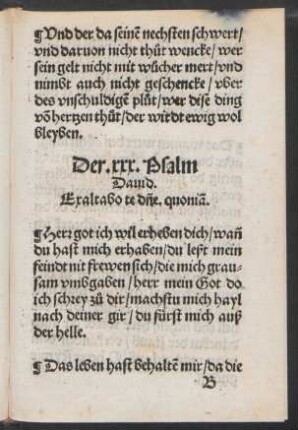 ¶Vnd der da seinē nechsten schwert/
vnd daruon nicht thůt wencke/wer
sein gelt nicht mit wůcher mert/vnd
nimbt auch nicht geschencke/vber
des vnschuldigē plůt/wer dise ding
vō hertzen thůt/der wirdt ewig wol
bleyben.
Der.xxx.Psalm
Dauid.
Exaltabo te dñe. quoniā.
¶Herr got ich wil erheben dich/wañ
du hast mich erhaben/du lest mein
feindt nit frewen sich/die mich grau-
sam vmbgaben/herr mein Got do
ich schrey zů dir/machstu mich hayl
nach deiner gir/du fürst mich auß
der helle.
¶Das leben hast behaltē mir/da die
B